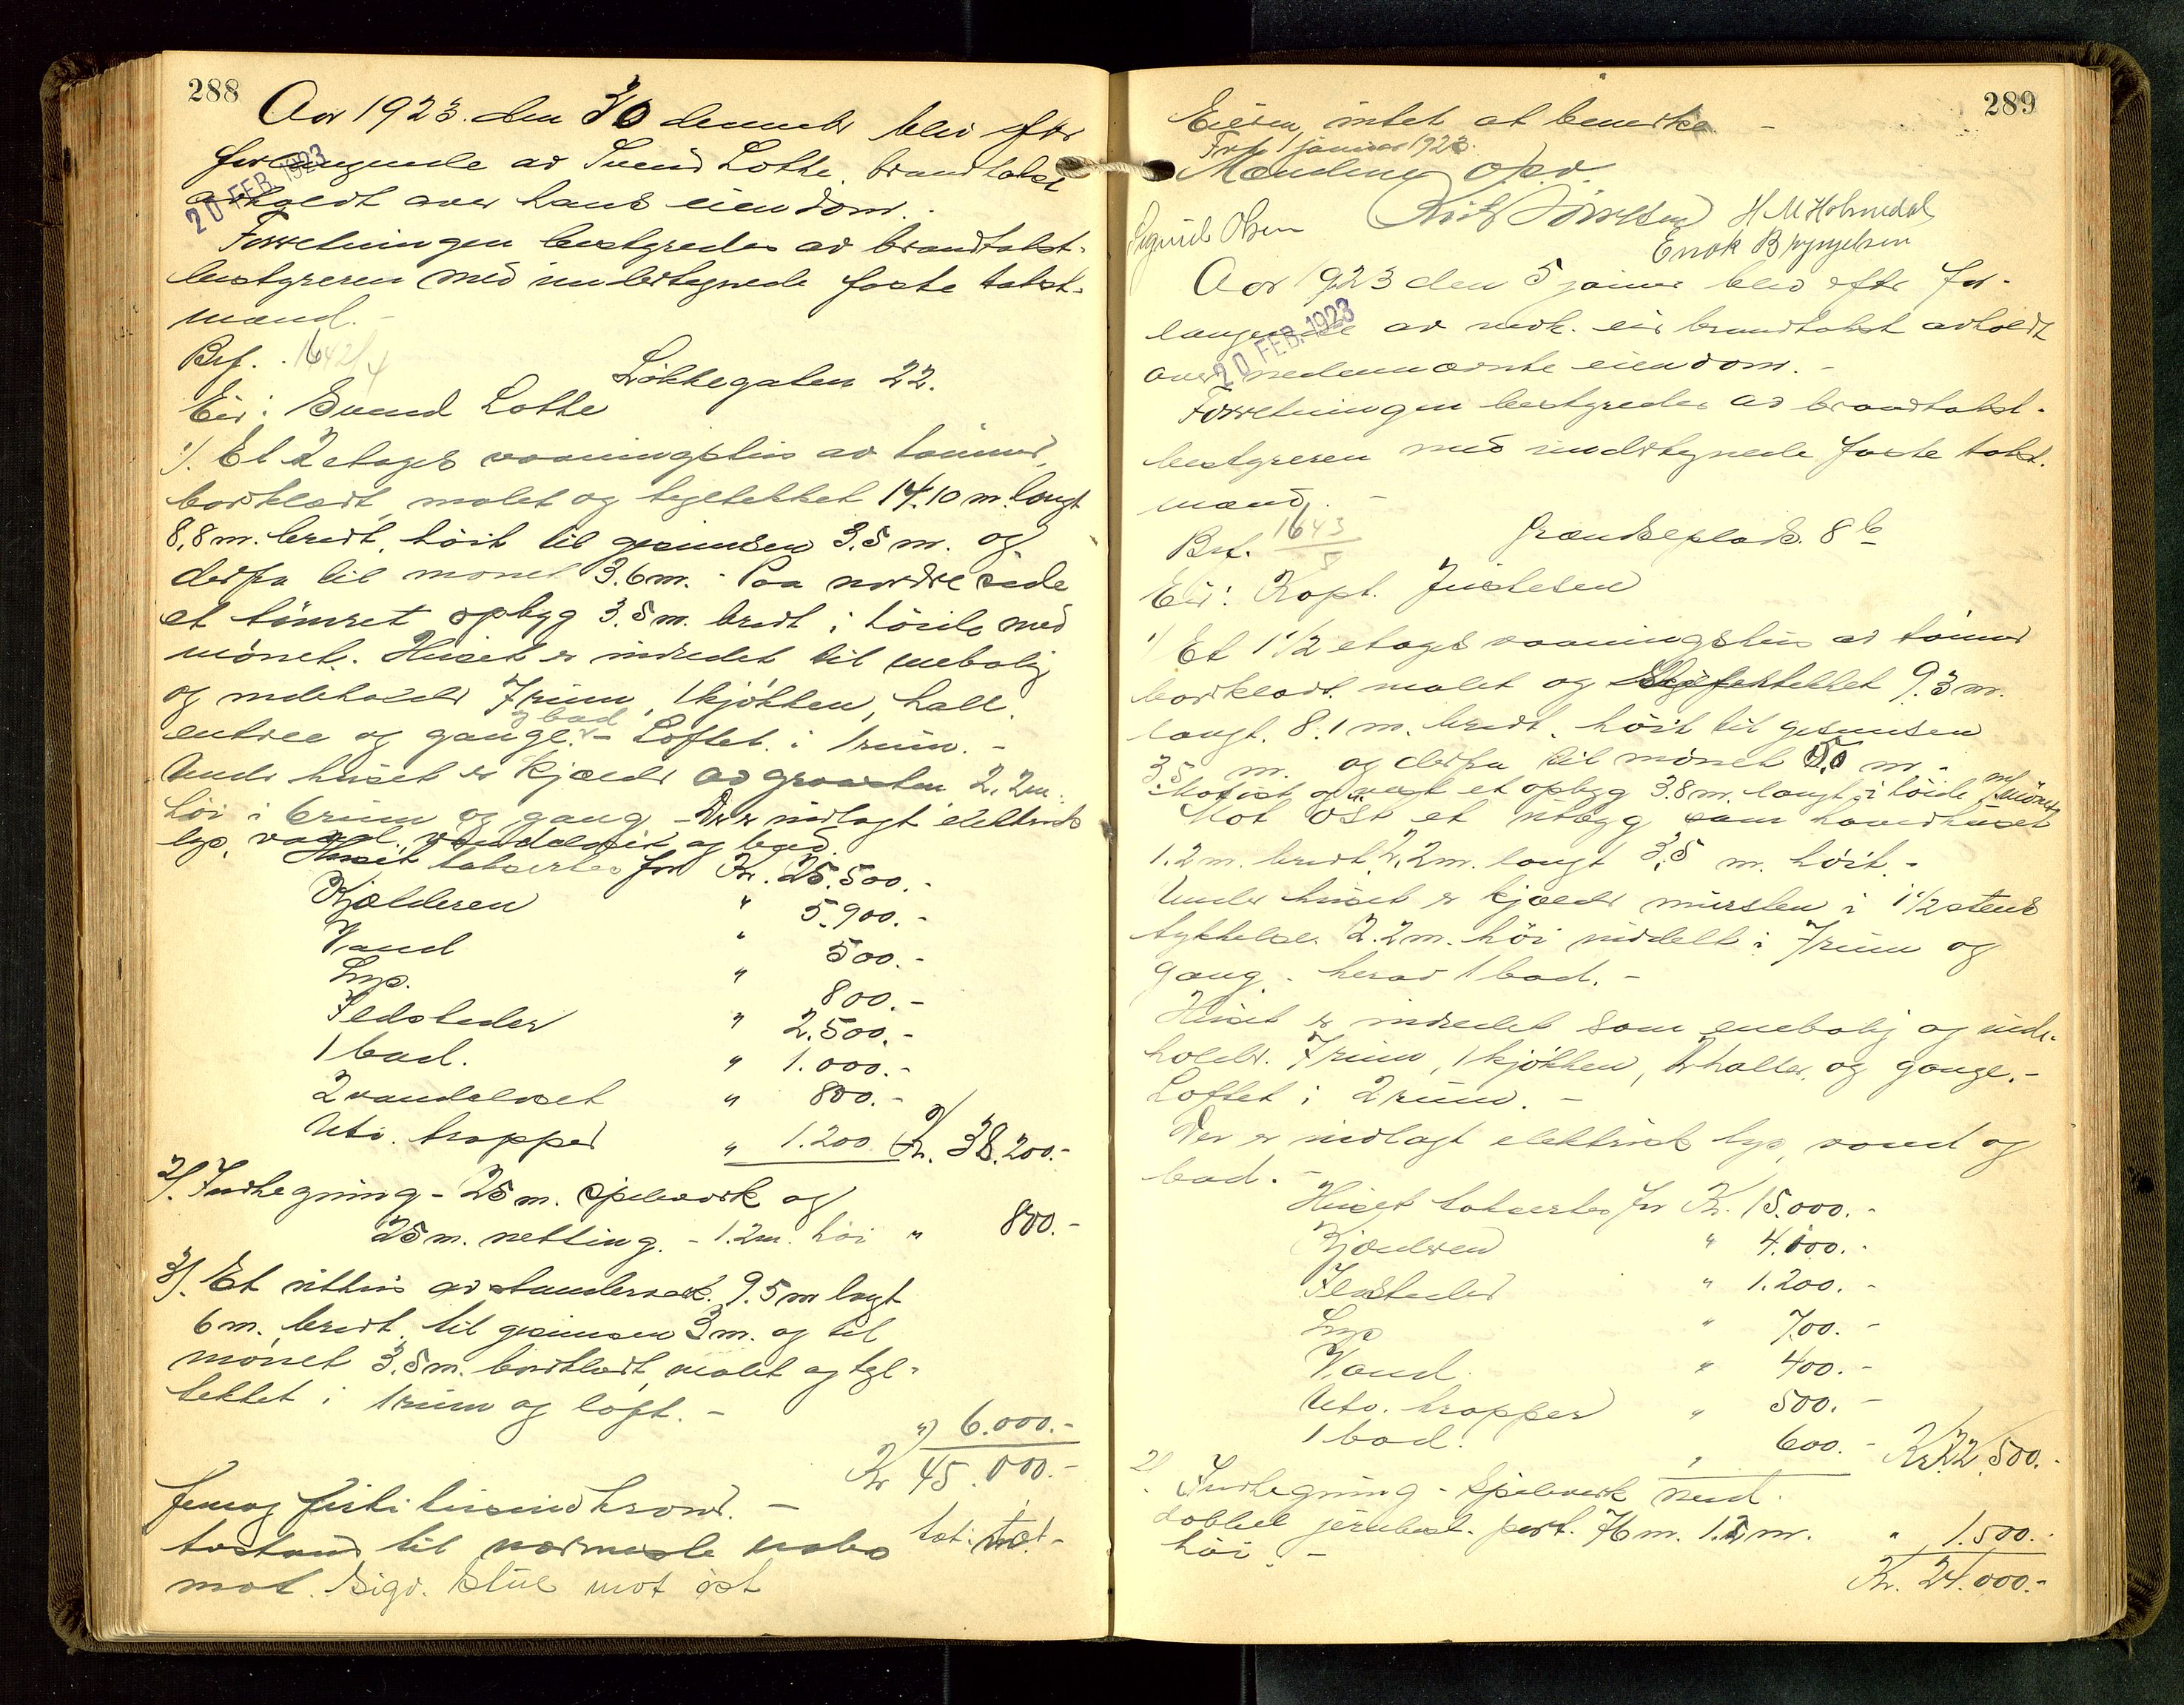 288
Aar 1923. den 30 decembr blev efter
forlangende av Svend Lothe. brandtakst
20 FEB. 1923
avholdt over hans eiendom.
Forretningen bestyredes av brandtakst-
bestyreren med undertegnede faste takst-
mænd. -
Brf. 1642/4
Løkkegaten 22.
Eier: Svend Lothe
1/. Et 2 etages vaaningshus av tømmer,
bordklædt, malet og tegltekket 14.10 m. langt
8,8 m. bredt, höit til gesimsen 3.5 m. og
derfra til mønet 3.6 m. - Paa nordre side
et tømret opbyg 3.5 m. bredt i höide med
mønet. Huset er indredet til enebolig
og indeholder 7 rum, 1 kjøkken, hall.
og bad
entree og gange. - Loftet i 1 rum. -
Under huset er kjælder av graasten 2.2 m.
höi i 6 rum og gang - Der er indlagt elektrisk
lys, vand, vandcloset og bad.
Huset taksertes for Kr. 25.500.-
Kjælderen " 5.900.-
Vand " 500.-
Lys. " 800.-
Ildsteder " 2.500.-
1 bad. " 1.000.-
2 vandcloset " 800.-
Utv. trapper " 1.200 Kr. 38.200.-
2/. Indhegning - 25 m. spileverk og
25 m. netting. - 1.2 m. höi " 800.-
3/. Et uthus av stenderverk. 9.5 m langt
6 m. bredt. til gesimsen 3 m. og til
mønet 3.5 m. bordklædt, malet og tegl-
tekket i 1 rum og loft. -
" 6.000.-
Kr 45.000.-
femog firti tusind kroner. -
avstand til nærmeste nabo
mot Sigv. mot øst
289
Eieren intet at bemerke -
1 januar 1923.
Mændene opn.
Sigurd Olsen H M Holmedal
Enok Bryngelsen
Aar 1923 den 5 januar blev efter for-
langende av nedn. eier brandtakst avholdt
20 FEB. 1923
over nedennævnte eiendom. -
Forretningen bestyredes av brandtakst-
bestyreren med undertegnede faste takst-
mænd. -
Brf. 1643/5 Grændseplads. 8 b
Eier: Kapt. Justesen
1/ Et 1 1/2 etages vaaningshus av tømmer
bordklædt. malet og skifertekket 9.3 m.
langt. 8.1 m. bredt. höit til gesimsen
3,5 m. og derfra til mønet 5,0 m. -
Mot øst og vest et opbyg 3.8 m. langt i höide med mønet
Mot öst et utbyg som hovedhuset
1.2 m. bredt, 2,2 m. langt 3,5 m. höit. -
Under huset er kjælder mursten i 1 1/2 stens
tykkelse. 2.2 m. höi inddelt i 7 rum og
gang - herav 1 bad. -
Huset er indredet som enebolig og inde-
holder. 7 rum, 1 kjøkken, 2 haller, og gange. -
Loftet i 2 rum. -
Der er indlagt elektrisk lys, vand og
bad. -
Huset taksertes for Kr. 15.000.-
Kjælderen " 4.100.-
Ildsteder " 1.200.-
Lys " 700.-
Vand " 400.-
Utv. trapper " 500.-
1 bad. " 600.- Kr. 22.500.-
2/ Indhegning - Spileverk med
dobbel port. 76 m. 1.2 m.
höi. - " 1.500.-
Kr. 24.000.-